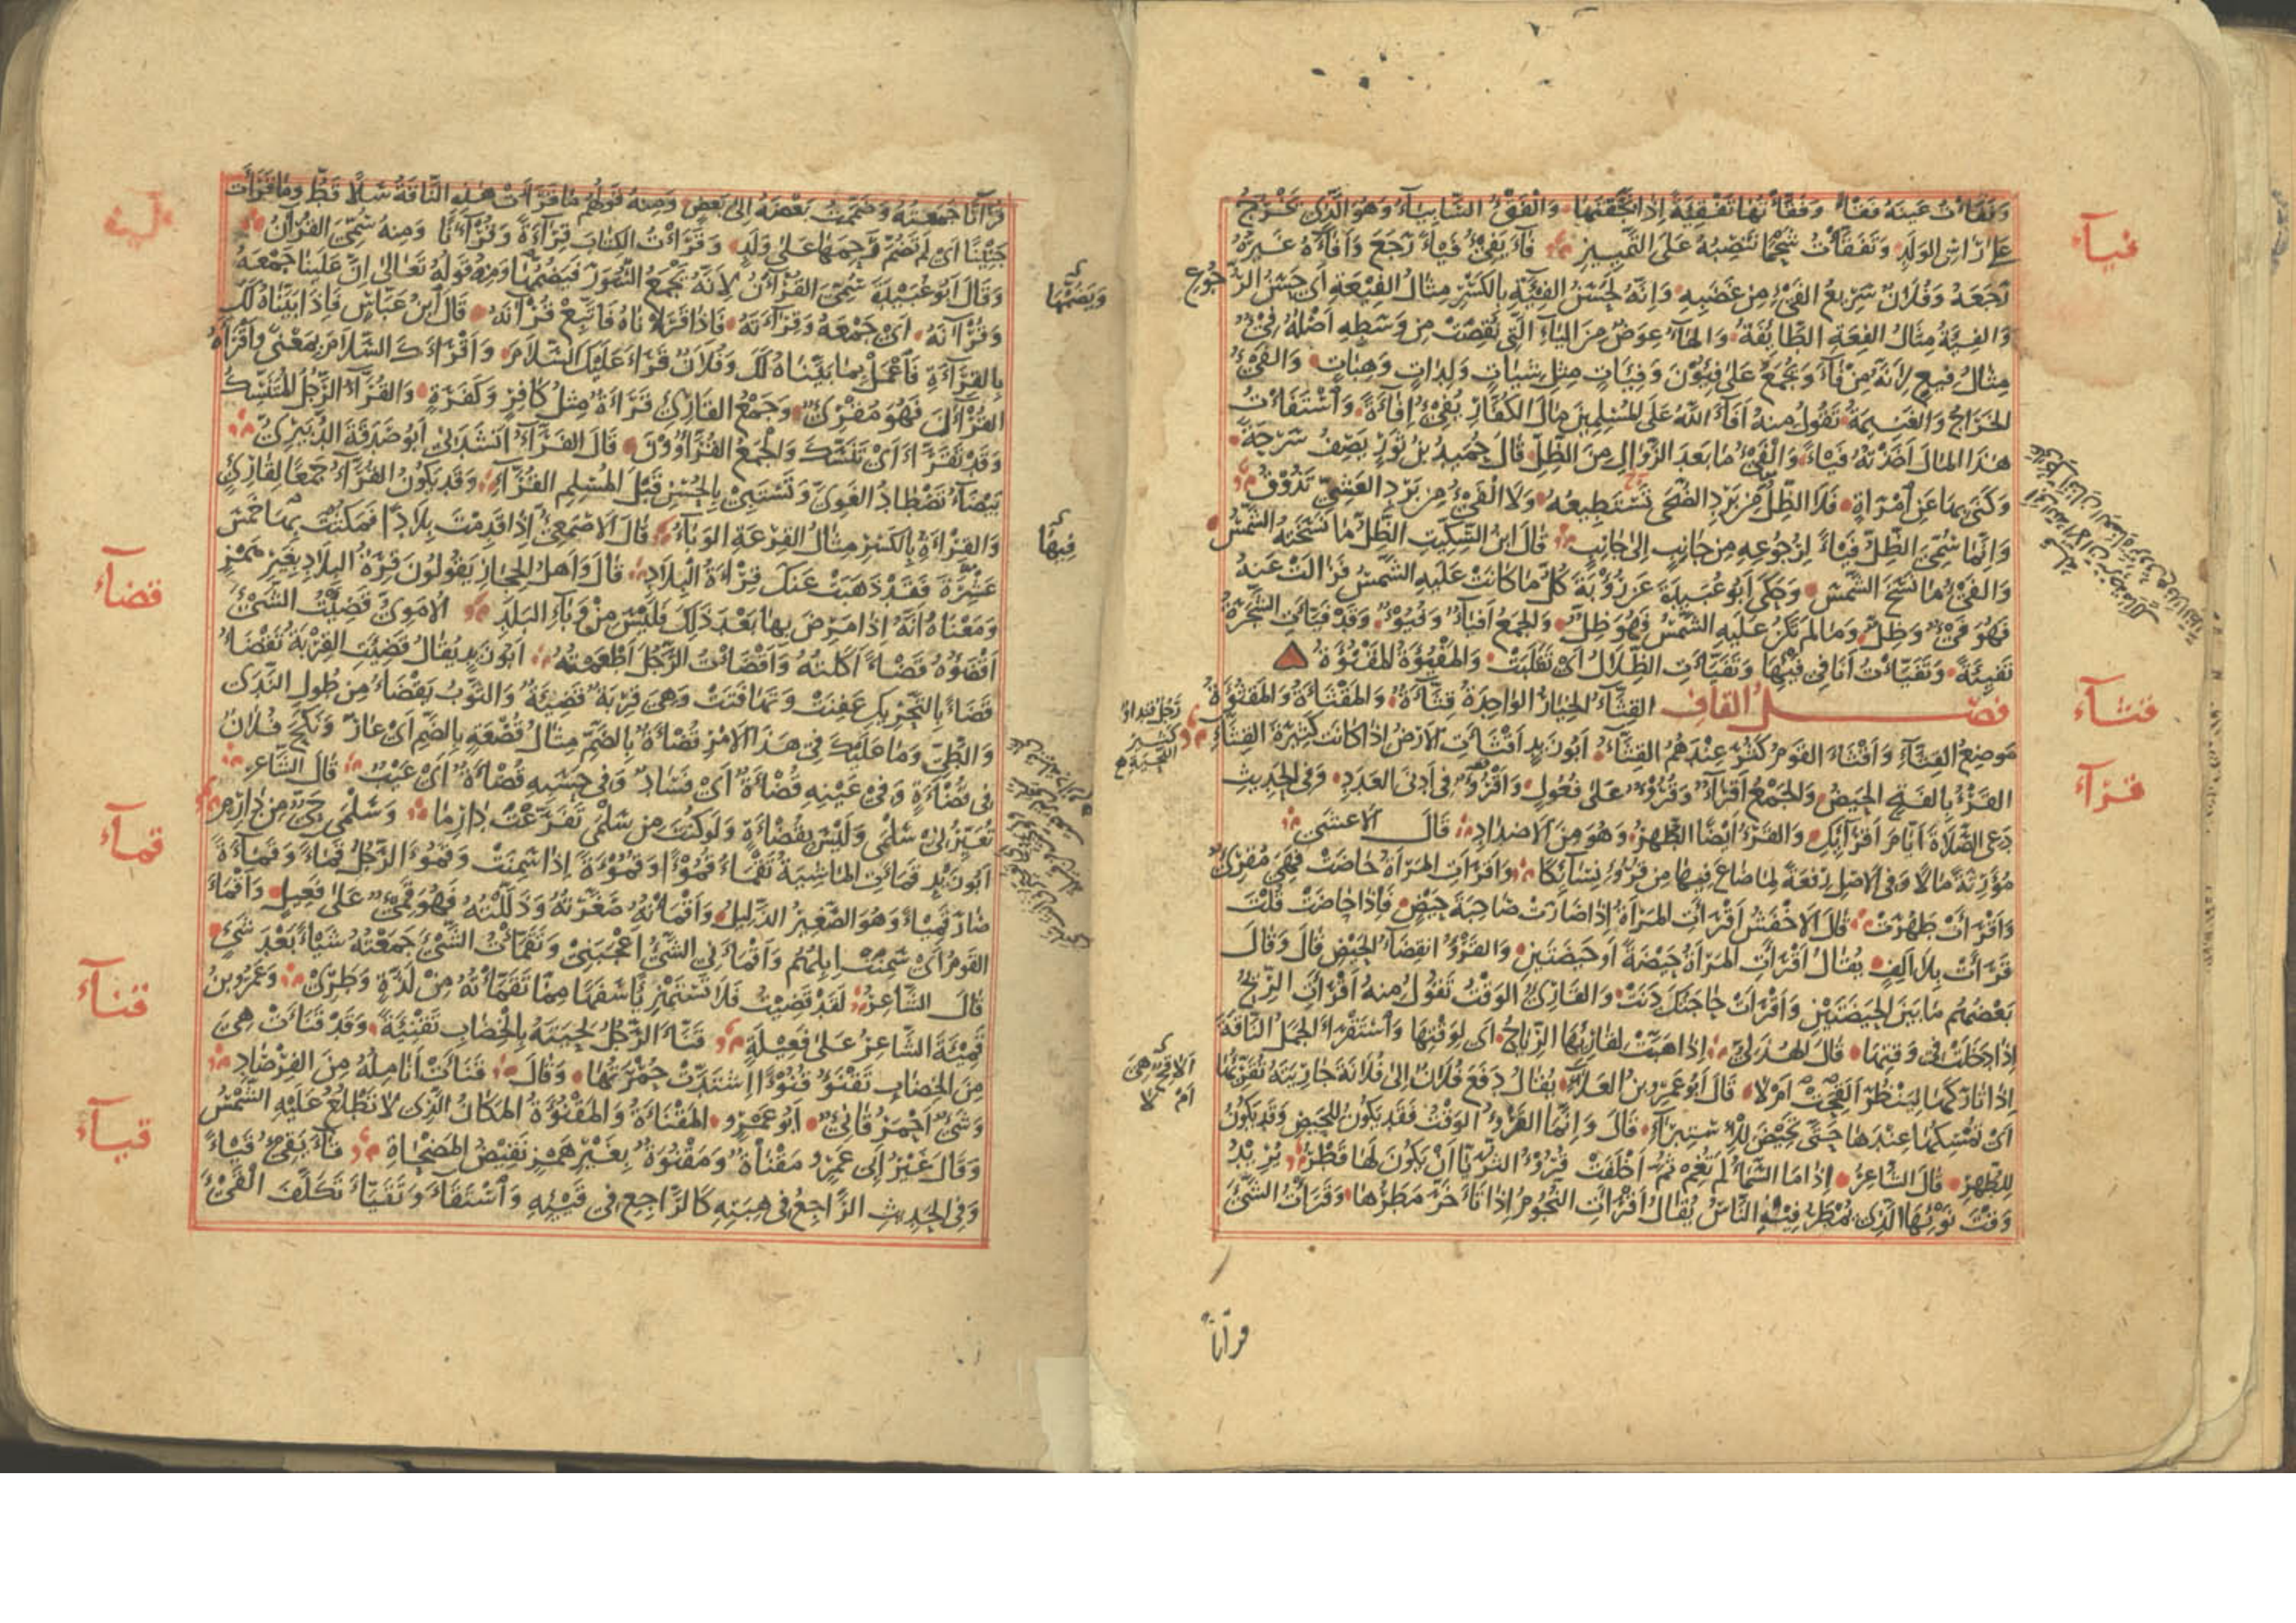 وَفَقَأْتُ عَيْنَهُ فَقْأً وَفَقَّأْتُهَا تَفْقِئَةً إِذَا بَخَقْتَهَا وَالْفَقْءُ السَّابِيَاءُ وَهُوَ الَّذِي يَخْرُجُ
عَلَى رَأْسِ الوَلَدِ وَتَفَقَّأْتُ شَحْمًا تَنْصِبُهُ عَلَى التَّمْيِيزِ فَاءَ يَفِيءُ فَيْئًا رَجَعَ وَأَفَاءَهُ غَيْرُهُ
فيأ
رَجَعَهُ وَفُلَانٌ سَرِيعُ الْفَيْءِ مِنْ غَضَبِهِ وَإِنَّهُ لَحَسَنُ الفِيئَةِ بِالكَسْرِ مِثَالُ الفِيعَةِ أَيْ حَسَنُ الرُّجُوعِ
وَالفِئَةُ مِثَالُ الفِعَةِ الطَّائِفَةُ وَالهَاءُ عِوَضٌ مِنَ اليَاءِ الَّتِي نَقَصَتْ مِنْ وَسَطِهِ أَصْلُهُ فِيْءٌ
مِثَالُ فِيعٍ لِأَنَّهُ مِنْ فَاءَ وَيُجْمَعُ عَلَى فِئُونَ وَفِئَاتٍ مِثْلَ شِيَاتٍ وَلِدَاتٍ وَهِبَاتٍ وَالفَيْءُ
الخَرَاجُ وَالغَنِيمَةُ تَقُولُ مِنْهُ أَفَاءَ اللهُ عَلَى المُسْلِمِينَ مَالَ الكُفَّارِ يُفِيءُ إِفَاءَةً وَاسْتَفَأْتُ
هَذَا المَالَ أَخَذْتُهُ فَيْئًا وَالْفَيْءُ مَا بَعْدَ الزَّوَالِ مِنَ الظِّلِّ قَالَ حُمَيْدُ بْنُ ثَوْرٍ يَصِفُ سَرْحَةً
وَكَنَى بِهَا عَنِ امْرَأَةٍ فَلَا الظِّلُّ مِنْ بَرْدِ الضُّحَى تَسْتَطِيعُهُ وَلَا الْفَيْءُ مِنْ بَرْدِ العَشِيِّ تَذُوقُ
وَإِنَّمَا سُمِّيَ الظِّلُّ فَيْئًا لِرُجُوعِهِ مِنْ جَانِبٍ إِلَى جَانِبٍ قَالَ ابْنُ السِّكِّيتِ الظِّلُّ مَا نَسَخَتْهُ الشَّمْسُ
وَالفَيْءُ مَا نَسَخَ الشَّمْسَ وَحَكَى أَبُو عُبَيْدَةَ عَنْ رُؤْبَةَ كُلُّ مَا كَانَتْ عَلَيْهِ الشَّمْسُ فَزَالَتْ عَنْهُ
فَهُوَ فَيْءٌ وَظِلٌّ وَمَا لَمْ تَكُنْ عَلَيْهِ الشَّمْسُ فَهُوَ ظِلٌّ وَالجَمْعُ أَفْيَاءٌ وَفُيُوءٌ وَقَدْ فَيَّأَتِ الشَّجَرَةُ
تَفْيِئَةً وَتَفَيَّأْتُ أَنَا فِي فَيْئِهَا وَتَفَيَّأَتِ الظِّلَالُ أَيْ تَقَلَّبَتْ وَالمَفْيُؤَةُ المَقْنُؤَةُ
فَصْلُ القَافِ القِثَّاءُ الخِيَارُ الوَاحِدَةُ قِثَّاءَةٌ وَالمَقْثَأَةُ وَالمَقْثُؤَةُ
قثأ
مَوْضِعُ القِثَّاءِ وَأَقْثَأَ القَوْمُ كَثُرَ عِنْدَهُمُ القِثَّاءُ أَبُو زَيْدٍ أَقْثَأَتِ الأَرْضُ إِذَا كَانَتْ كَثِيرَةَ القِثَّاءِ
القَرْءُ بِالفَتْحِ الحَيْضُ وَالجَمْعُ أَقْرَاءٌ وَقُرُوءٌ عَلَى فُعُولٍ وَأَقْرُؤٌ فِي أَدْنَى العَدَدِ وَفِي الحَدِيثِ
قرأ
دَعِي الصَّلَاةَ أَيَّامَ أَقْرَائِكِ وَالقَرْءُ أَيْضًا الطُّهْرُ وَهُوَ مِنَ الأَضْدَادِ قَالَ الأَعْشَى
مُوَرِّثَةً مَالًا وَفِي الأَصْلِ رِفْعَةً لِمَا ضَاعَ فِيهَا مِنْ قُرُوءِ نِسَائِكَا وَأَقْرَأَتِ المَرْأَةُ حَاضَتْ فَهِيَ مُقْرِئٌ
وَأَقْرَأَتْ طَهُرَتْ قَالَ الأَخْفَشُ أَقْرَأَتِ المَرْأَةُ إِذَا صَارَتْ صَاحِبَةَ حَيْضٍ فَإِذَا حَاضَتْ قُلْتَ
قَرَأَتْ بِلَا أَلِفٍ يُقَالُ أَقْرَأَتِ المَرْأَةُ حَيْضَةً أَوْ حَيْضَتَيْنِ وَالقَرْءُ انْقِضَاءُ الحَيْضِ قَالَ وَقَالَ
بَعْضُهُمْ مَا بَيْنَ الحَيْضَتَيْنِ وَأَقْرَأَتْ حَاجَتُكَ دَنَتْ وَالقَارِئُ الوَقْتُ تَقُولُ مِنْهُ أَقْرَأَتِ الرِّيحُ
إِذَا دَخَلَتْ فِي وَقْتِهَا قَالَ الهُذَلِيُّ إِذَا هَبَّتْ لِقَارِئِهَا الرِّيَاحُ أَيْ لِوَقْتِهَا وَاسْتَقْرَأَ الجَمَلُ النَّاقَةَ
إِذَا تَارَكَهَا لِيَنْظُرَ أَلَقِحَتْ أَمْ لَا قَالَ أَبُو عَمْرِو بْنُ العَلَاءِ يُقَالُ دَفَعَ فُلَانٌ إِلَى فُلَانَةَ جَارِيَتَهُ تُقَرِّئُهَا
أَيْ تُمْسِكُهَا عِنْدَهَا حَتَّى تَحِيضَ لِلْاسْتِبْرَاءِ قَالَ وَإِنَّمَا القَرْءُ الوَقْتُ فَقَدْ يَكُونُ لِلْحَيْضِ وَقَدْ يَكُونُ
لِلطُّهْرِ قَالَ الشَّاعِرُ إِذَا مَا السَّمَاءُ لَمْ تَغِمْ ثُمَّ أَخْلَفَتْ قُرُوءُ الثُّرَيَّا أَنْ يَكُونَ لَهَا قَطْرُ يُرِيدُ
وَقْتَ نَوْئِهَا الَّذِي يُمْطَرُ فِيهِ النَّاسُ يُقَالُ أَقْرَأَتِ النُّجُومُ إِذَا تَأَخَّرَ مَطَرُهَا وَقَرَأْتُ الشَّيْءَ
قرآنا
قُرْآنًا جَمَعْتُهُ وَضَمَمْتُ بَعْضَهُ إِلَى بَعْضٍ وَمِنْهُ قَوْلُهُمْ مَا قَرَأَتْ هَذِهِ النَّاقَةُ سَلًا قَطُّ وَمَا قَرَأَتْ
جَنِينًا أَيْ لَمْ تَضُمَّ رَحِمَهَا عَلَى وَلَدٍ وَقَرَأْتُ الكِتَابَ قِرَاءَةً وَقُرْآنًا وَمِنْهُ سُمِّيَ القُرْآنُ
وَقَالَ أَبُو عُبَيْدَةَ سُمِّيَ القُرْآنُ لِأَنَّهُ يَجْمَعُ السُّوَرَ فَيَضُمُّهَا وَمِنْهُ قَوْلُهُ تَعَالَى إِنَّ عَلَيْنَا جَمْعَهُ
ويضمها
وَقُرْآنَهُ أَيْ جَمْعَهُ وَقِرَاءَتَهُ فَإِذَا قَرَأْنَاهُ فَاتَّبِعْ قُرْآنَهُ قَالَ ابْنُ عَبَّاسٍ فَإِذَا بَيَّنَّاهُ لَكَ
بِالقِرَاءَةِ فَاعْمَلْ بِمَا بَيَّنَّاهُ لَكَ وَفُلَانٌ قَرَأَ عَلَيْكَ السَّلَامَ وَأَقْرَأَكَ السَّلَامَ بِمَعْنًى وَأَقْرَأَهُ
القُرْآنَ فَهُوَ مُقْرِئٌ وَجَمْعُ القَارِئِ قَرَأَةٌ مِثْلُ كَافِرٍ وَكَفَرَةٍ وَالقُرَّاءُ الرَّجُلُ المُتَنَسِّكُ
وَقَدْ تَقَرَّأَ أَيْ تَنَسَّكَ وَالجَمْعُ القُرَّاؤُونَ قَالَ الفَرَّاءُ أَنْشَدَنِي أَبُو صَدَقَةَ الدُّبَيْرِيُّ
بَيْضَاءُ تَصْطَادُ الغَوِيَّ وَتَسْتَبِي بِالحُسْنِ قَلْبَ المُسْلِمِ القُرَّاءِ وَقَدْ يَكُونُ القُرَّاءُ جَمْعًا لِقَارِئٍ
وَالقِرْأَةُ بِالكَسْرِ مِثَالُ القِرْعَةِ الوَبَاءُ قَالَ الأَصْمَعِيُّ إِذَا قَدِمْتَ بِلَادًا فَمَكَثْتَ بِهَا خَمْسَ
فيها
عَشْرَةَ فَقَدْ ذَهَبَتْ عَنْكَ قِرْأَةُ البِلَادِ قَالَ وَأَهْلُ الحِجَازِ يَقُولُونَ قِرَةُ البِلَادِ بِغَيْرِ هَمْزٍ
وَمَعْنَاهُ أَنَّهُ إِذَا مَرِضَ بِهَا بَعْدَ ذَلِكَ فَلَيْسَ مِنْ وَبَاءِ البَلَدِ الأُمَوِيُّ قَضِئْتُ الشَّيْءَ
قضأ
أَقْضَؤُهُ قَضْأً أَكَلْتُهُ وَأَقْضَأْتُ الرَّجُلَ أَطْعَمْتُهُ أَبُو زَيْدٍ يُقَالُ قَضِئَتِ القِرْبَةُ تَقْضَأُ
قَضَأً بِالتَّحْرِيكِ عَفِنَتْ وَتَهَافَتَتْ وَهِيَ قِرْبَةٌ قَضِئَةٌ وَالثَّوْبُ يَقْضَأُ مِنْ طُولِ النَّدَى
وَالطَّيِّ وَمَا عَلَيْكَ فِي هَذَا الأَمْرِ قُضْأَةٌ بِالضَّمِّ مِثَالُ قُضْعَةٍ بِالضَّمِّ أَيْ عَارٌ وَنَكَحَ فُلَانٌ
فِي قُضْأَةٍ وَفِي عَيْنِهِ قُضْأَةٌ أَيْ فَسَادٌ وَفِي حَسَبِهِ قُضْأَةٌ أَيْ عَيْبٌ قَالَ الشَّاعِرُ
تُعَيِّرُنِي سَلْمَى وَلَيْسَ بِقُضْأَةٍ وَلَوْ كُنْتُ مِنْ سَلْمَى تَفَرَّعْتُ دَارِمَا وَسَلْمَى حَيٌّ مِنْ دَارِمٍ
أَبُو زَيْدٍ قَمَأَتِ المَاشِيَةُ تَقْمَأُ قُمُوءًا وَقُمُوءَةً إِذَا سَمِنَتْ وَقَمُؤَ الرَّجُلُ قَمَاءً وَقَمَاءَةً
قمأ
صَارَ قَمِيئًا وَهُوَ الصَّغِيرُ الذَّلِيلُ وَأَقْمَأْتُهُ صَغَّرْتُهُ وَذَلَّلْتُهُ فَهُوَ قَمِيءٌ عَلَى فَعِيلٍ وَأَقْمَأَ
القَوْمُ أَيْ سَمِنَتْ إِبِلُهُمْ وَأَقْمَأَنِي الشَّيْءُ أَعْجَبَنِي وَتَقَمَّأْتُ الشَّيْءَ جَمَعْتُهُ شَيْئًا بَعْدَ شَيْءٍ
قَالَ الشَّاعِرُ لَقَدْ قَضَيْتُ فَلَا تَسْتَهْزِئَا سَفَهًا مِمَّا تَقَمَّأْتُهُ مِنْ لَذَّةٍ وَطَرِي وَعَمْرُو بْنُ
قَمِيئَةَ الشَّاعِرُ عَلَى فَعِيلَةٍ قَنَّأَ الرَّجُلُ لِحْيَتَهُ بِالخِضَابِ تَقْنِئَةً وَقَدْ قَنَأَتْ هِيَ
قنأ
مِنَ الخِضَابِ تَقْنَؤُ قُنُوءًا اشْتَدَّتْ حُمْرَتُهَا وَقَالَ قَنَأَتْ أَنَامِلُهُ مِنَ الفِرْصَادِ
وَشَيْءٌ أَحْمَرُ قَانِئٌ أَبُو عَمْرٍو المَقْنَأَةُ وَالمَقْنُؤَةُ المَكَانُ الَّذِي لَا تَطْلُعُ عَلَيْهِ الشَّمْسُ
وَقَالَ غَيْرُ أَبِي عَمْرٍو مَقْنَاةٌ وَمَقْنُوَةٌ بِغَيْرِ هَمْزٍ نَقِيضُ المَضْحَاةِ قَاءَ يَقِيءُ قَيْئًا
قيأ
وَفِي الحَدِيثِ الرَّاجِعُ فِي هِبَتِهِ كَالرَّاجِعِ فِي قَيْئِهِ وَاسْتَقَاءَ وَتَقَيَّأَ تَكَلَّفَ القَيْءَ